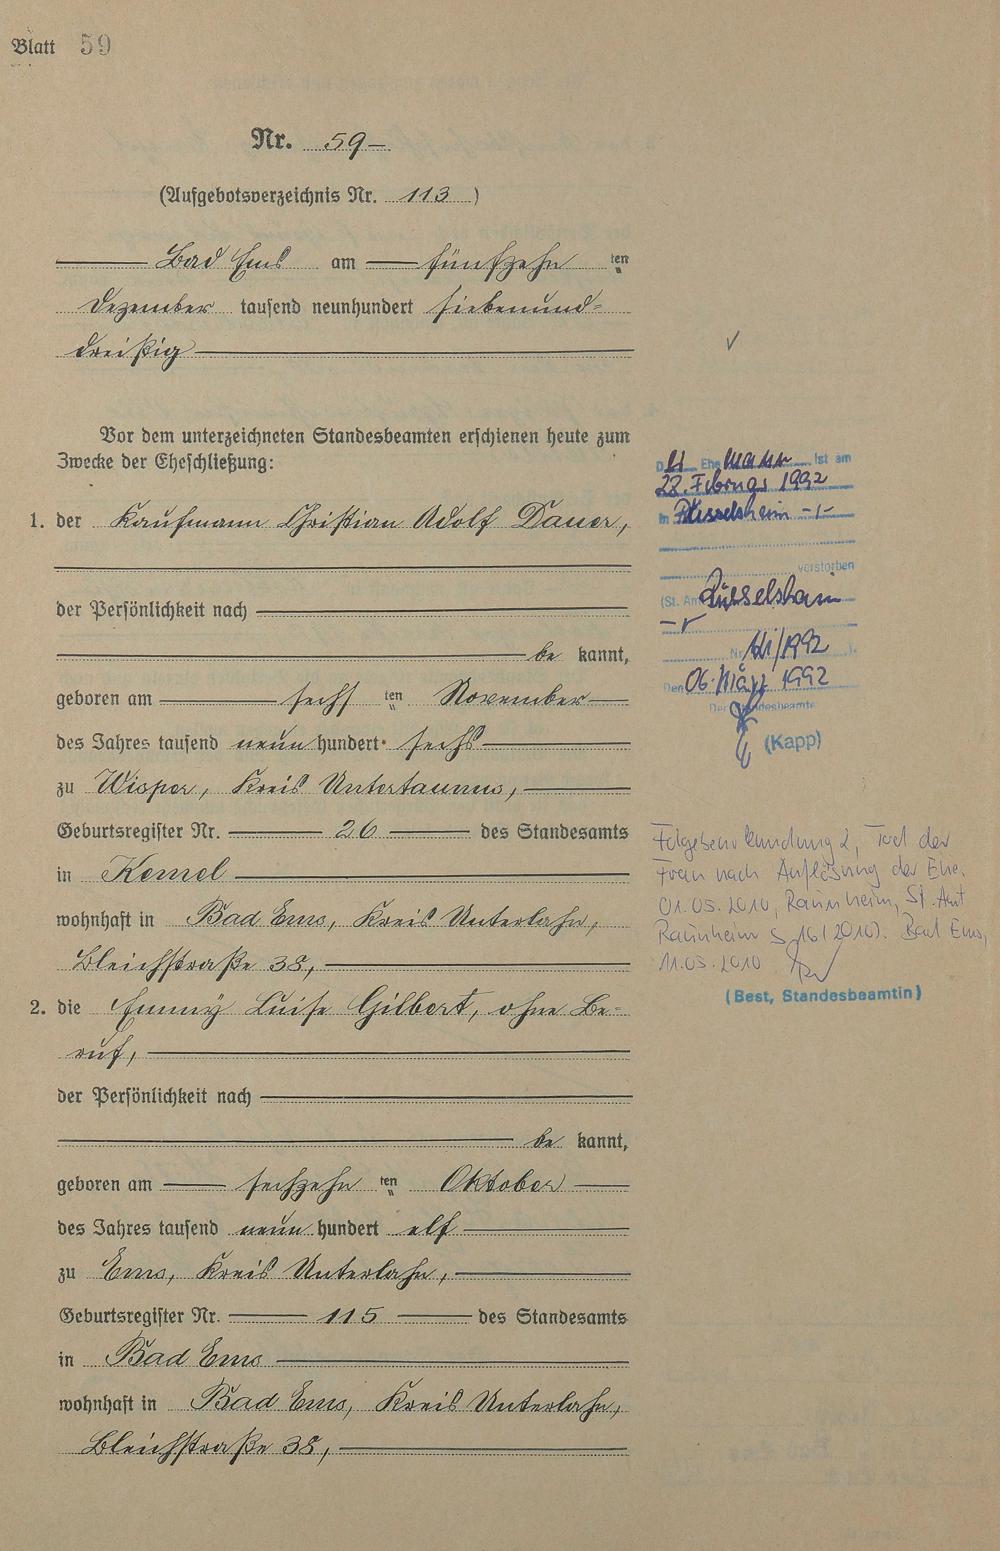 Blatt 59
Nr. 59
(Aufgebotsverzeichnis Nr. 113)
Bad Ems am fünfzehn ten
Dezember tausend neunhundert siebenund-
dreißig
Vor dem unterzeichneten Standesbeamten erschienen heute zum
Zwecke der Eheschließung:
1. der Kaufmann Christian Adolf Dauer,
der Persönlichkeit nach
be kannt,
geboren am sechs ten November
des Jahres tausend neun hundert sechs
zu Wisper, Kreis Untertaunus,
Geburtsregister Nr. 26 des Standesamts
in Kemel
wohnhaft in Bad Ems, Kreis Unterlahn,
Bleichstraße 38,
2. die Emmy Luise Gilbert, ohne Be-
ruf,
der Persönlichkeit nach
be kannt,
geboren am sechzehn ten Oktober
des Jahres tausend neun hundert elf
zu Ems, Kreis Unterlahn,
Geburtsregister Nr. 115 des Standesamts
in Bad Ems
wohnhaft in Bad Ems, Kreis Unterlahn,
Bleichstraße 38,
Der Ehemann ist am
22. Februar 1992
in Rüsselsheim
verstorben
(St. Amt Rüsselsheim
Nr. /1992 ).
Den 06. März 1992
Der Standesbeamte
(Kapp)
Folgebeurkundung 2, Tod der
Frau nach Auflösung der Ehe.
01.05.2010, Raunheim, St. Amt
Raunheim S 16/2010). Bad Ems,
11.05.2010
(Best, Standesbeamtin)